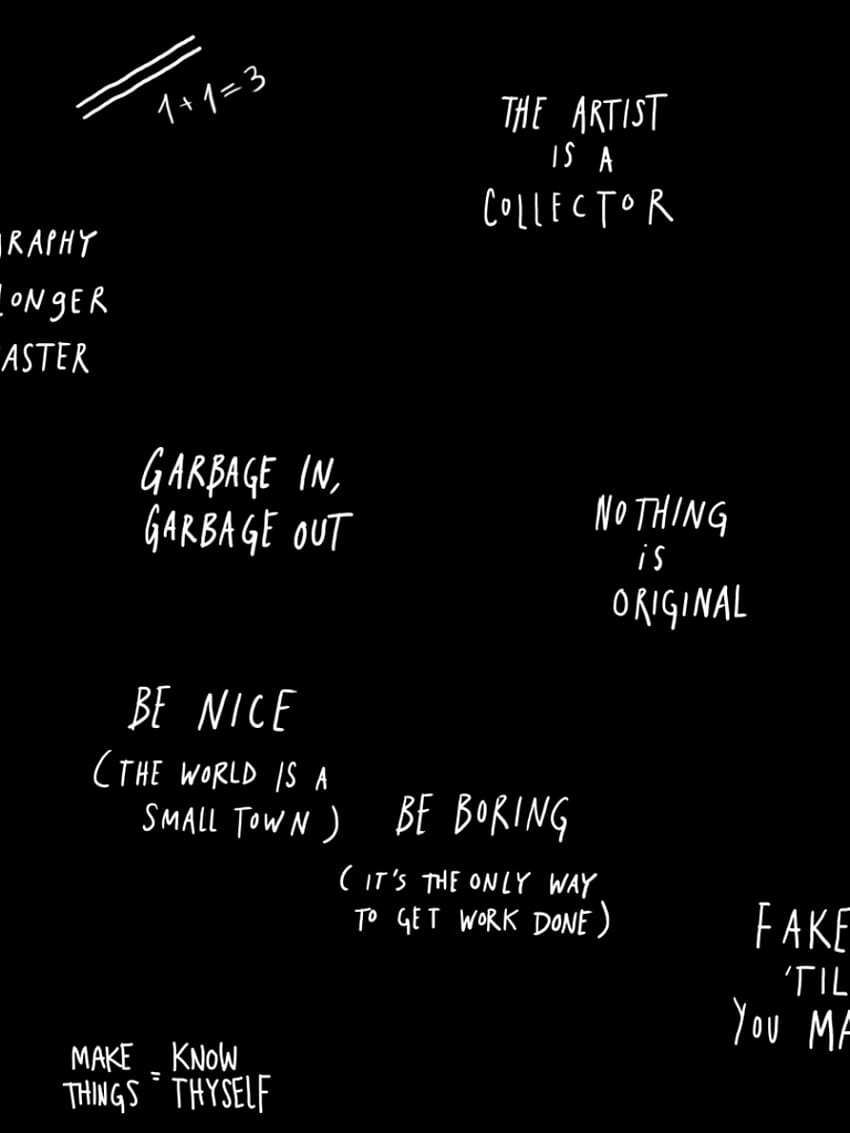 1+1=3
THE ARTIST
IS A
COLLECTOR
RAPHY
LONGER
ASTER
GARBAGE IN,
GARBAGE OUT
NOTHING
iS
ORIGINAL
BE NICE
(THE WORLD IS A
SMALL TOWN)
BE BORING
(IT'S THE ONLY WAY
TO GET WORK DONE)
FAKE
'TIL
YOU MA
MAKE THINGS = KNOW THYSELF